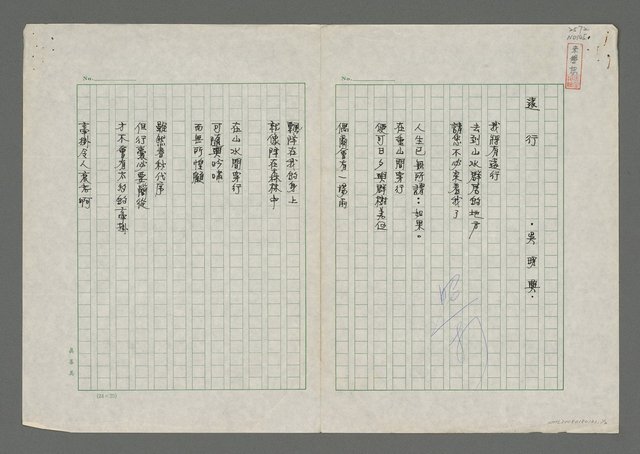 遠行
·吳明興·
我將有遠行
去到山水群居的地方
請您不必來看我了
人生已無所謂:如果。
在重山間穿行
便可日夕與群樹為伍
偶爾會有一場雨
飄降在我的身上
都像降在森林中
在山水間穿行
可隨興吟嘯
而無所惶顧
雖然春秋代序
但行囊必要簡從
才不會有太多的牽掛
牽掛令人衰老啊
No.
No.
(24×25)